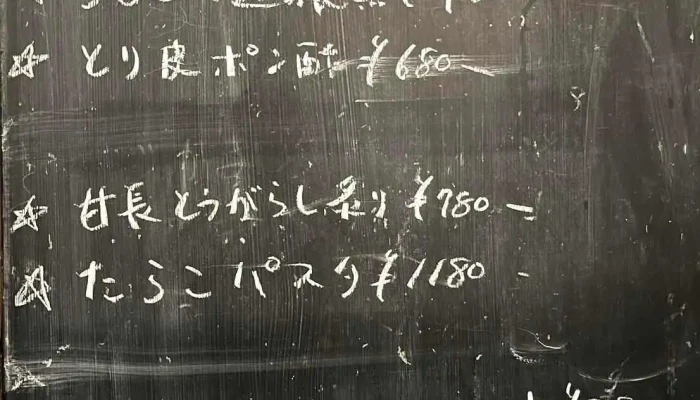 ☆ とり皮ポン酢 ¥680-
☆ 甘長とうがらし炙り ¥780-
☆ たらこパスタ ¥1180-